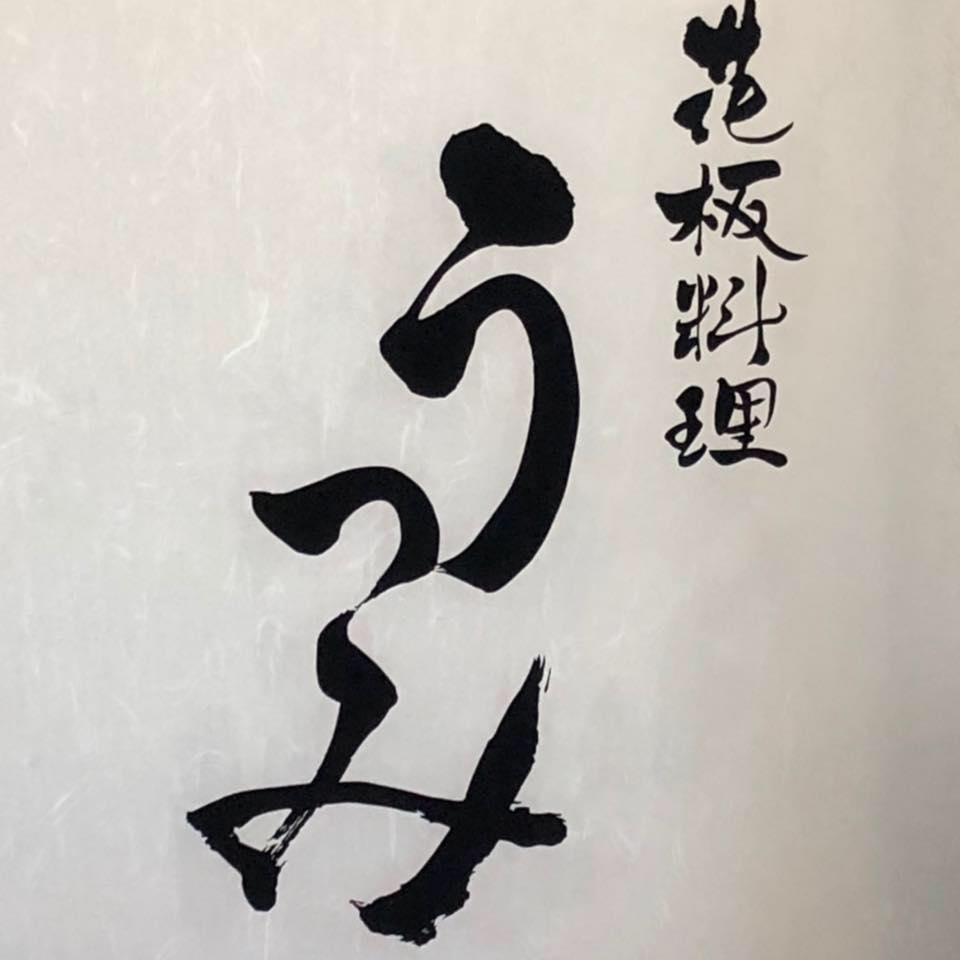 花板料理
うつみ